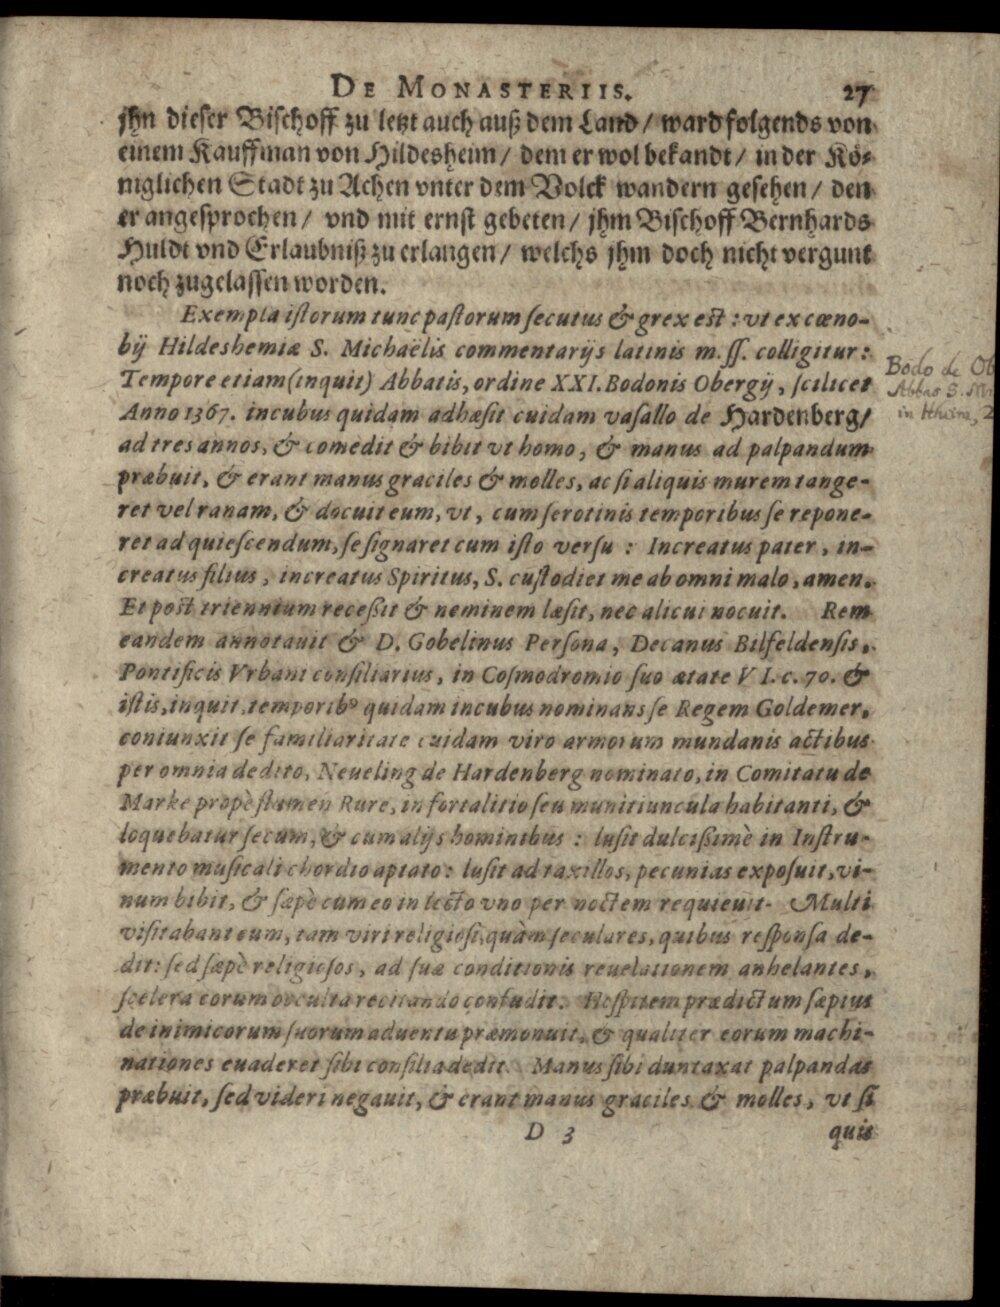 DE MONASTERIIS. 27
jhn dieser Bischoff zu letzt auch auß dem Land / ward folgends von
einem Kauffman von Hildesheim / dem er wol bekandt / in der Kö-
niglichen Stadt zu Achen vnter dem Volck wandern gesehen / den
er angesprochen / vnd mit ernst gebeten / jhm Bischoff Bernhards
Huldt vnd Erlaubniß zu erlangen / welchs jhm doch nicht vergunt
noch zugelassen worden.
Exempla istorum tunc pastorum secutus & grex est : vt ex cœno-
bij Hildeshemiæ S. Michaëlis commentarijs latinis m.ſſ. colligitur :
Tempore etiam (inquit) Abbatis, ordine XXI. Bodonis Obergij, scilicet
Anno 1367. incubus quidam adhæsit cuidam vasallo de Hardenberg/
ad tres annos, & comedit & bibit vt homo, & manus ad palpandum
præbuit, & erant manus graciles & molles, ac si aliquis murem tange-
ret vel ranam, & docuit eum, vt, cum serotinis temporibus se repone-
ret ad quiescendum, se signaret cum isto versu : Increatus pater, in-
creatus filius, increatus Spiritus, S. custodiet me ab omni malo, amen.
Et post triennium recessit & neminem læsit, nec alicui nocuit. Rem
eandem annotauit & D. Gobelinus Persona, Decanus Bilfeldensis,
Pontificis Vrbani consiliarius, in Cosmodromio suo ætate VI. c. 70. &
istis, inquit, temporibꝰ quidam incubus nominans se Regem Goldemer,
coniunxit se familiaritate cuidam viro armorum mundanis actibus
per omnia dedito, Neueling de Hardenberg nominato, in Comitatu de
Marke propè flumen Rure, in fortalitio seu munitiuncula habitanti, &
loquebatur secum, & cum alijs hominibus : lusit dulcissimè in Instru-
mento musicali chordio aptato : lusit ad taxillos, pecunias exposuit, vi-
num bibit, & sæpè cum eo in lecto vno per noctem requieuit. Multi
visitabant eum, tam viri religiosi, quàm seculares, quibus responsa de-
dit : sed sæpè religiosos, ad suæ conditionis reuelationem anhelantes,
scelera eorum occulta recitando confudit. Hospitem prædictum sæpius
de inimicorum suorum aduentu præmonuit, & qualiter eorum machi-
nationes euaderet sibi consilia dedit. Manus sibi duntaxat palpandas
præbuit, sed videri negauit, & erant manus graciles & molles, vt si
D 3 quis
Bodo de Ob
Abbas S. Mi
in